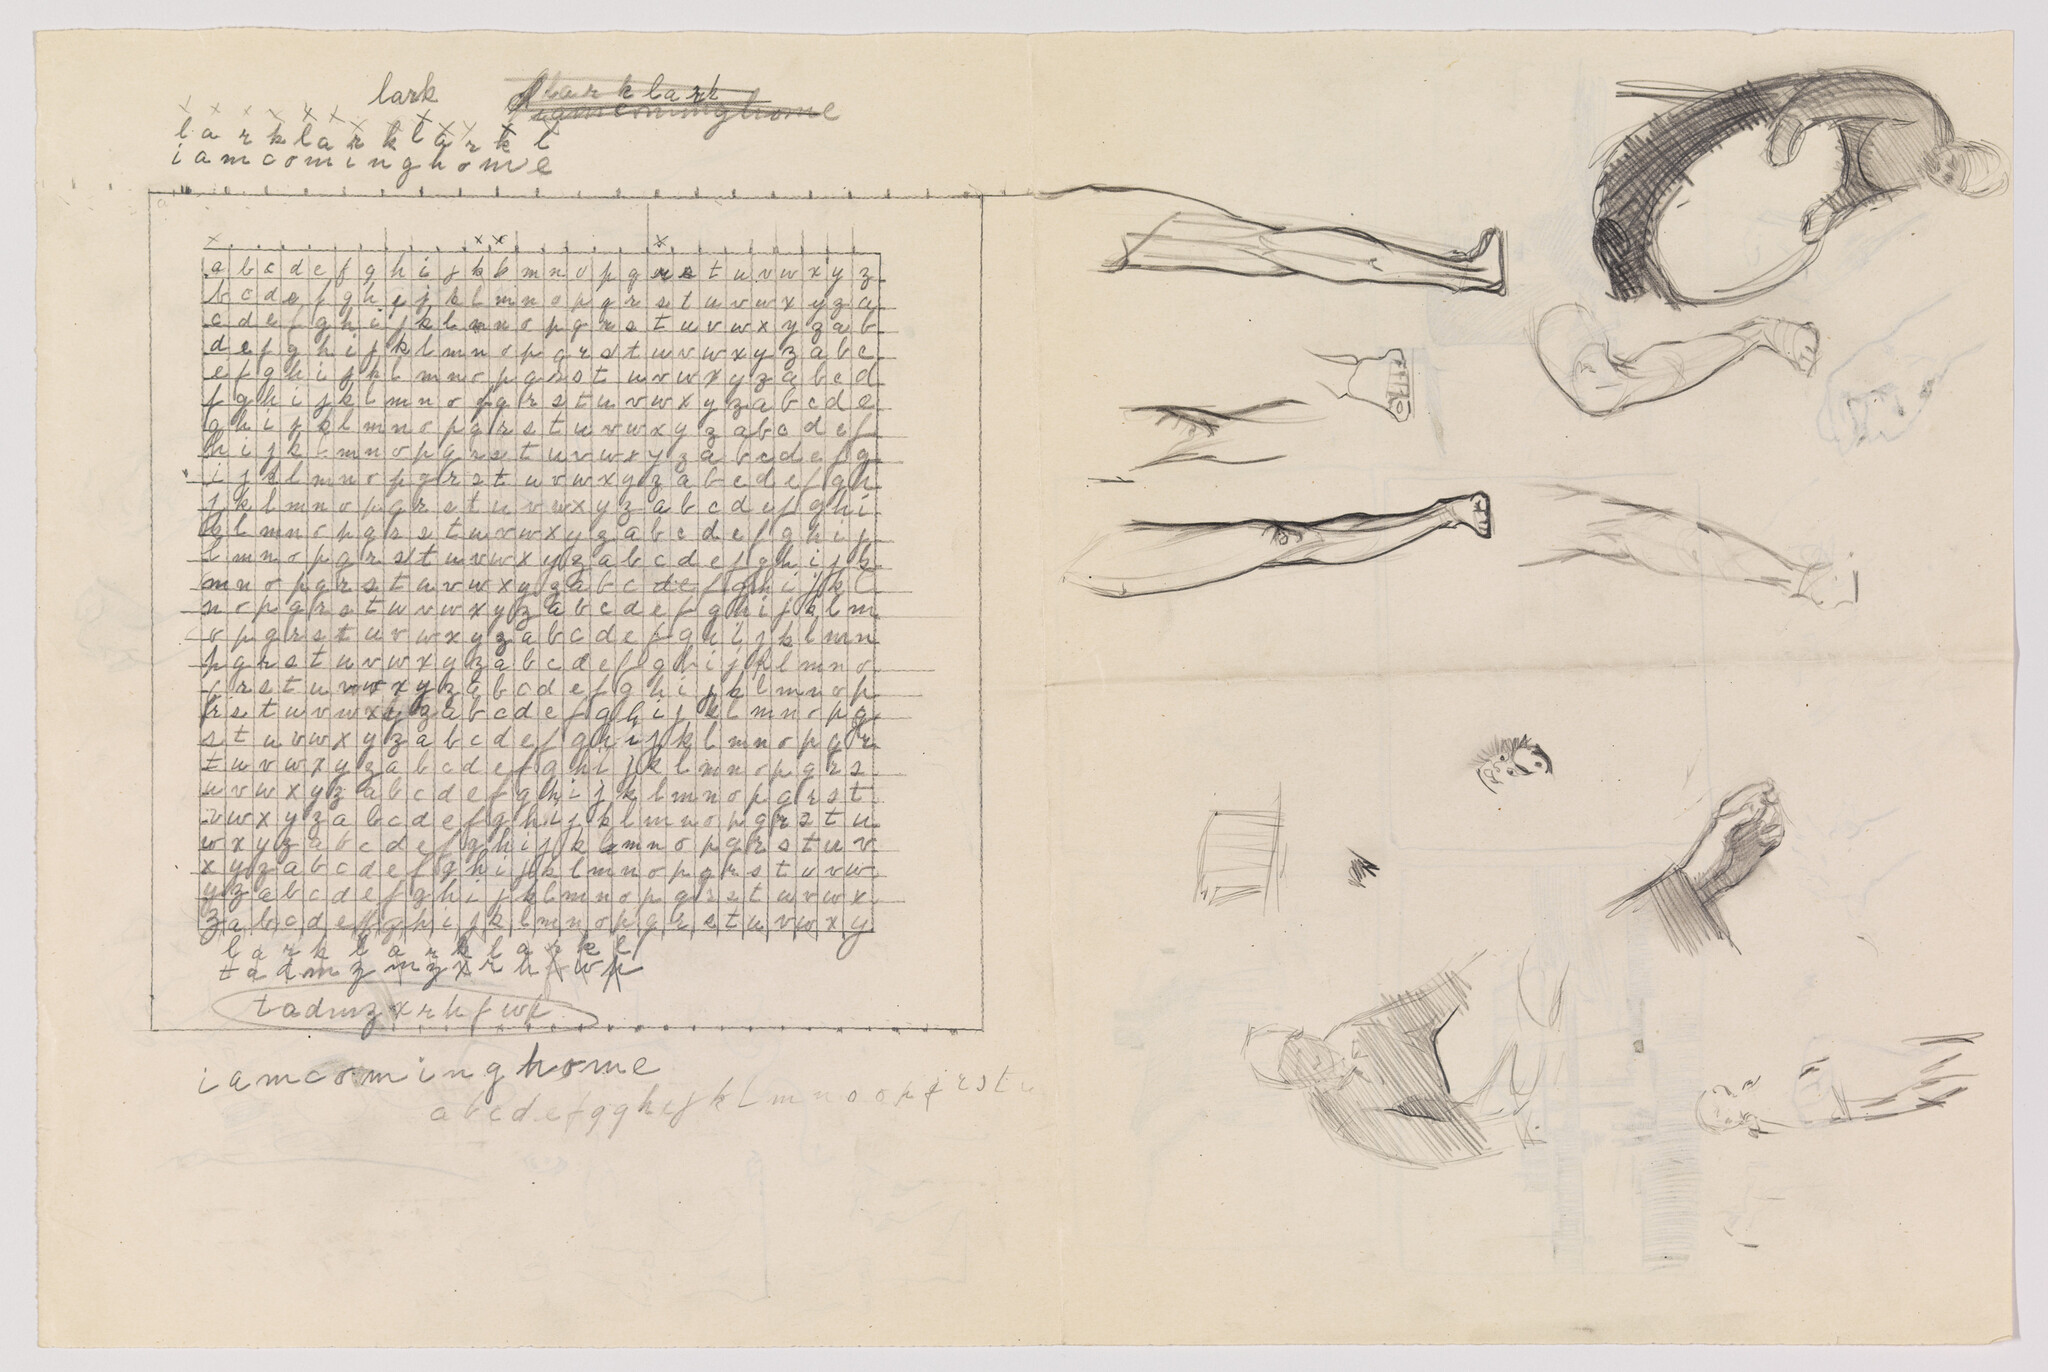 lark larklark
iamcominghome
larklarklarkl
iamcominghome
a b c d e f g h i j k l m n o p q r s t u v w x y z
b c d e f g h i j k l m n o p q r s t u v w x y z a
c d e f g h i j k l m n o p q r s t u v w x y z a b
d e f g h i j k l m n o p q r s t u v w x y z a b c
e f g h i j k l m n o p q r s t u v w x y z a b c d
f g h i j k l m n o p q r s t u v w x y z a b c d e
g h i j k l m n o p q r s t u v w x y z a b c d e f
h i j k l m n o p q r s t u v w x y z a b c d e f g
i j k l m n o p q r s t u v w x y z a b c d e f g h
j k l m n o p q r s t u v w x y z a b c d e f g h i
k l m n o p q r s t u v w x y z a b c d e f g h i j
l m n o p q r s t u v w x y z a b c d e f g h i j k
m n o p q r s t u v w x y z a b c d e f g h i j k l
n o p q r s t u v w x y z a b c d e f g h i j k l m
o p q r s t u v w x y z a b c d e f g h i j k l m n
p q r s t u v w x y z a b c d e f g h i j k l m n o
q r s t u v w x y z a b c d e f g h i j k l m n o p
r s t u v w x y z a b c d e f g h i j k l m n o p q
s t u v w x y z a b c d e f g h i j k l m n o p q r
t u v w x y z a b c d e f g h i j k l m n o p q r s
u v w x y z a b c d e f g h i j k l m n o p q r s t
v w x y z a b c d e f g h i j k l m n o p q r s t u
w x y z a b c d e f g h i j k l m n o p q r s t u v
x y z a b c d e f g h i j k l m n o p q r s t u v w
y z a b c d e f g h i j k l m n o p q r s t u v w x
z a b c d e f g h i j k l m n o p q r s t u v w x y
l a r k l a r k l a r k l
t a d m z m z x r h f w p
tadmzxrhfwp
iamcominghome
abcdefgghijklmnoopqrstu